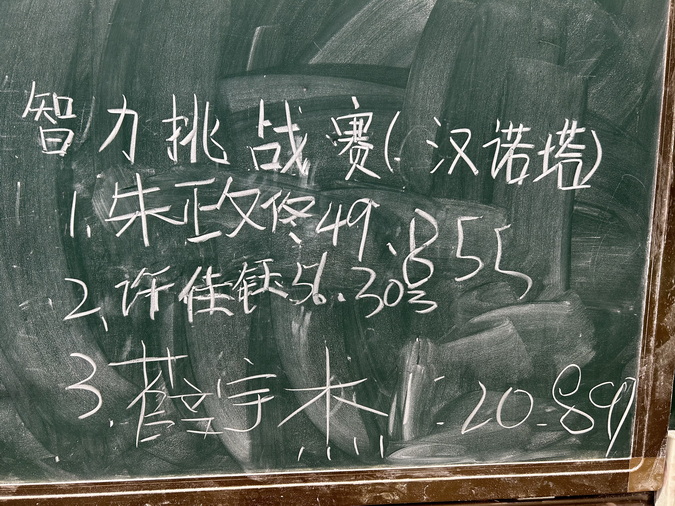 智力挑战赛(汉诺塔)
1.朱政佟49.855
2.许佳钰56.303
3.薛宇杰1:20.89